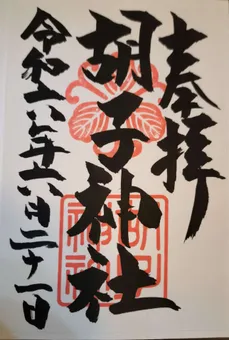 奉拝
胡子神社
令和六年六月二十一日
胡子
神社